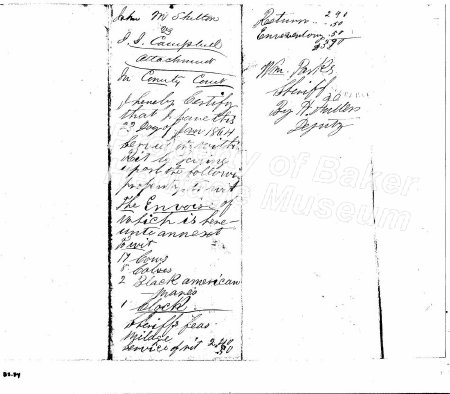 John M Shelton
vs
J. J. Campbell
Attachment
In County Court
I hereby Certify
that I have this
22 day of Jan 1864
Served in within
Writ by
upon the following
property to wit
The Envoice of
which is here-
unto annexed
to wit
17 Cows
8 Calves
2 Black american
mares
1 Clock
Sheriffs fees
Mildge 2.40
Service of writ 50
Return 2 90
.50
Envoicentory .50
$3.90
Wm. Parks
Sheriff
By
Deputy
of Baker
Museum